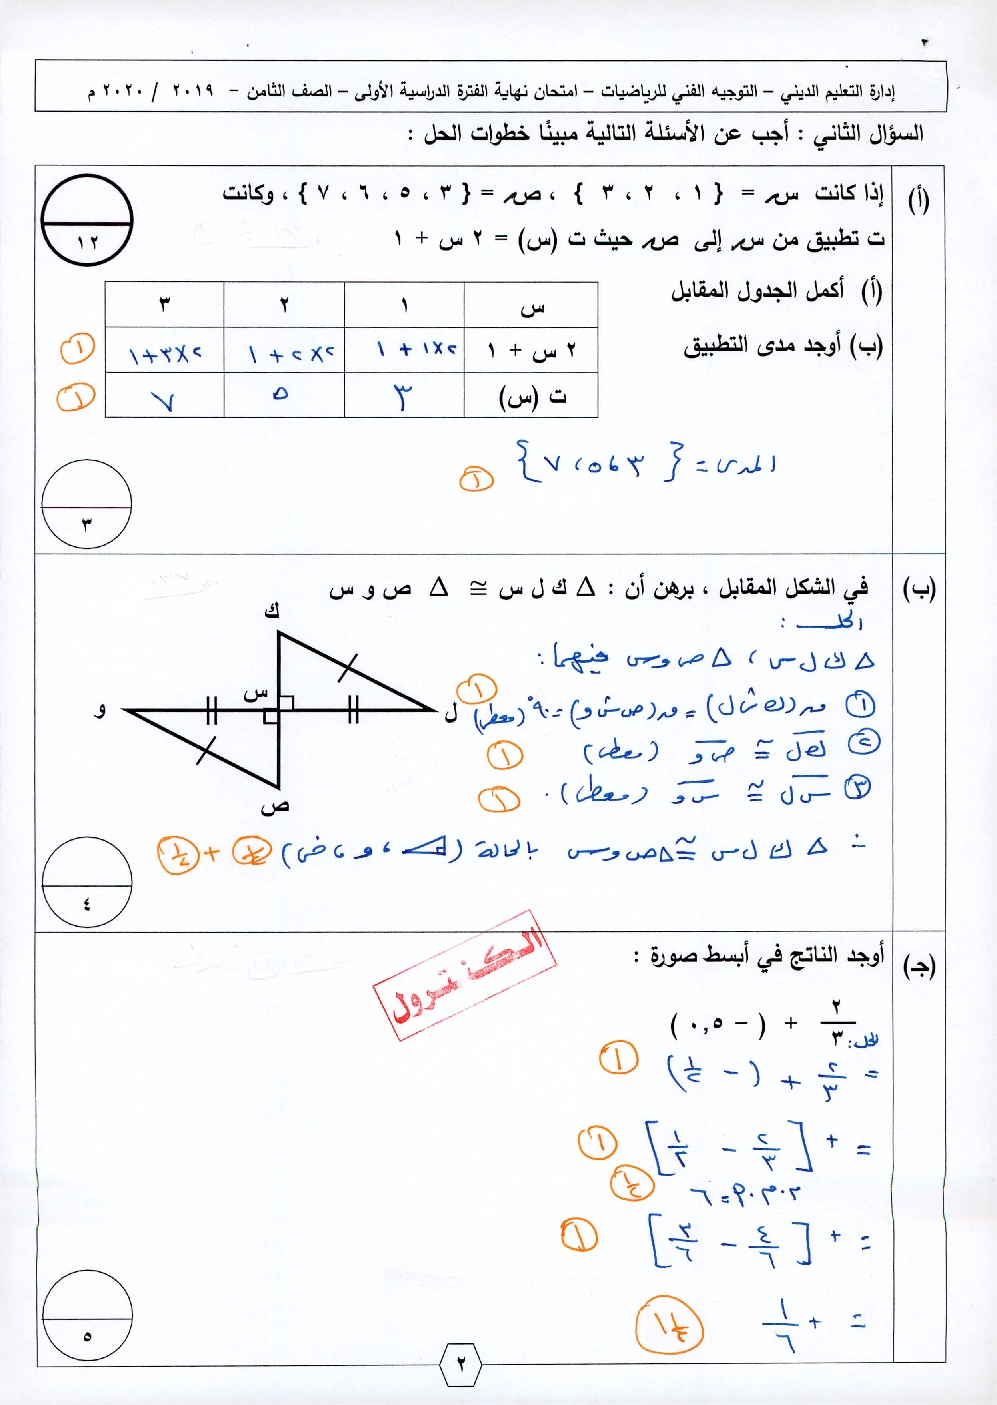 إدارة التعليم الديني – التوجيه الفني للرياضيات – امتحان نهاية الفترة الدراسية الأولى – الصف الثامن - ٢٠١٩ / ٢٠٢٠ م
السؤال الثاني : أجب عن الأسئلة التالية مبينًا خطوات الحل :
(أ) إذا كانت س = { ١ ، ٢ ، ٣ } ، ص = { ٣ ، ٥ ، ٦ ، ٧ } ، وكانت
ت تطبيق من س إلى ص حيث ت (س) = ٢ س + ١
١٢
(أ) أكمل الجدول المقابل
س ١ ٢ ٣
(ب) أوجد مدى التطبيق
٢ س + ١ ٢×١ + ١ ٢×٢ + ١ ٢×٣+١ ١
ت (س) ٣ ٥ ٧ ١
المدى = { ٣ ، ٥ ، ٧ } ١
٣
(ب) في الشكل المقابل ، برهن أن : Δ ك ل س ≅ Δ ص و س
الحل :
Δ ك ل س ، Δ ص و س فيهما :
١ ق (ك س ل) = ق (ص س و) = ٩٠° (معطى) ١
٢ ك ل ≅ ص و (معطى) ١
٣ س ل ≅ س و (معطى) . ١
∴ Δ ك ل س ≅ Δ ص و س بالحالة (⊿ ، و ، ض) ½ + ½
ك
س
و
ل
ص
٤
(جـ) أوجد الناتج في أبسط صورة :
الكنترول
٢/٣ + ( – ٠,٥ )
الحل :
= ٢/٣ + ( – ١/٢ ) ١
= + [ ٢/٣ – ١/٢ ] ١
م . م . أ = ٦ ½
= + [ ٤/٦ – ٣/٦ ] ١
= + ١/٦ ١½
٥
٢